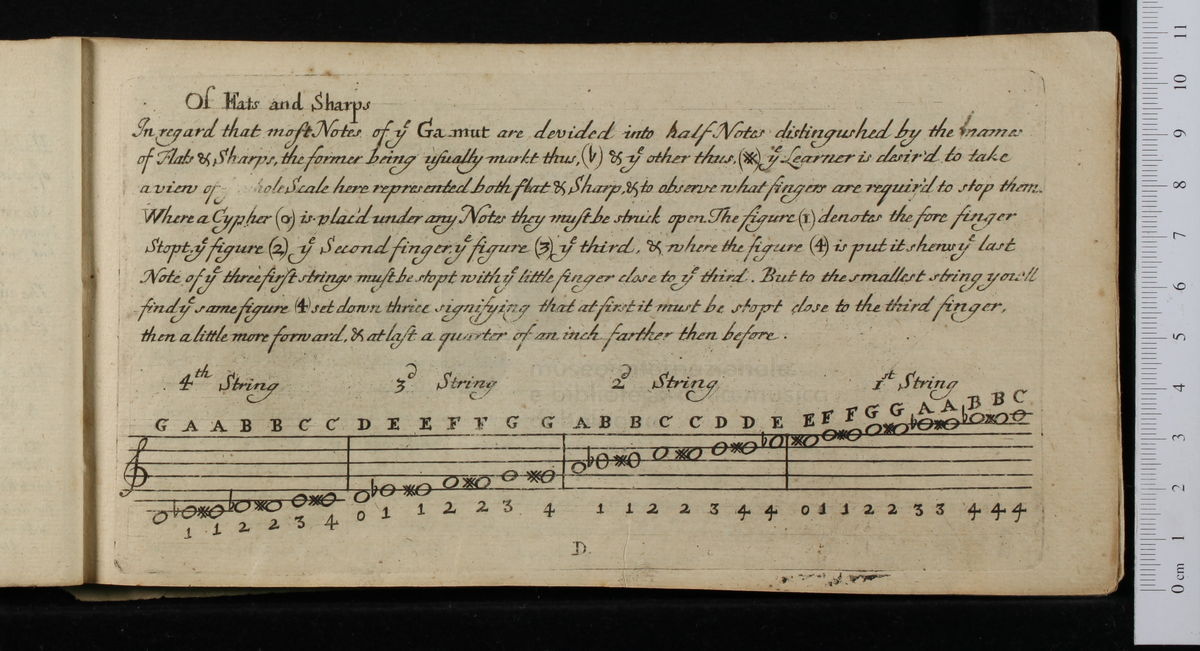 Of Flats and Sharps
In regard that most Notes of yͤ Gamut are devided into half Notes distingushed by the names
of Flats & Sharps, the former being usually markt thus, (♭) & yͤ other thus, (※) yͤ Learner is desir'd to take
a view of hole Scale here represented both flat & Sharp, & to observe what fingers are requir'd to stop them.
Where a Cypher (0) is plac'd under any Notes they must be struck open. The figure (1) denotes the fore finger
Stopt, yͤ figure (2) yͤ Second finger, yͤ figure (3) yͤ third, & where the figure (4) is put it shews yͤ last
Note of yͤ three first strings must be stopt with yͤ little finger close to yͤ third. But to the smallest string you'll
find yͤ same figure (4) set down thrice signifying that at first it must be stopt close to the third finger,
then a little more forward, & at last a quarter of an inch farther then before.
4th String 3d String 2d String 1st String
G A A B B C C D E E F F G G A B B C C D D E E F F G G A A B B C
1 1 2 2 3 4 0 1 1 2 2 3 4 1 1 2 2 3 4 4 0 1 1 2 2 3 3 4 4 4
D
museo internazionale
e biblioteca della musica
0 cm 1 2 3 4 5 6 7 8 9 10 11